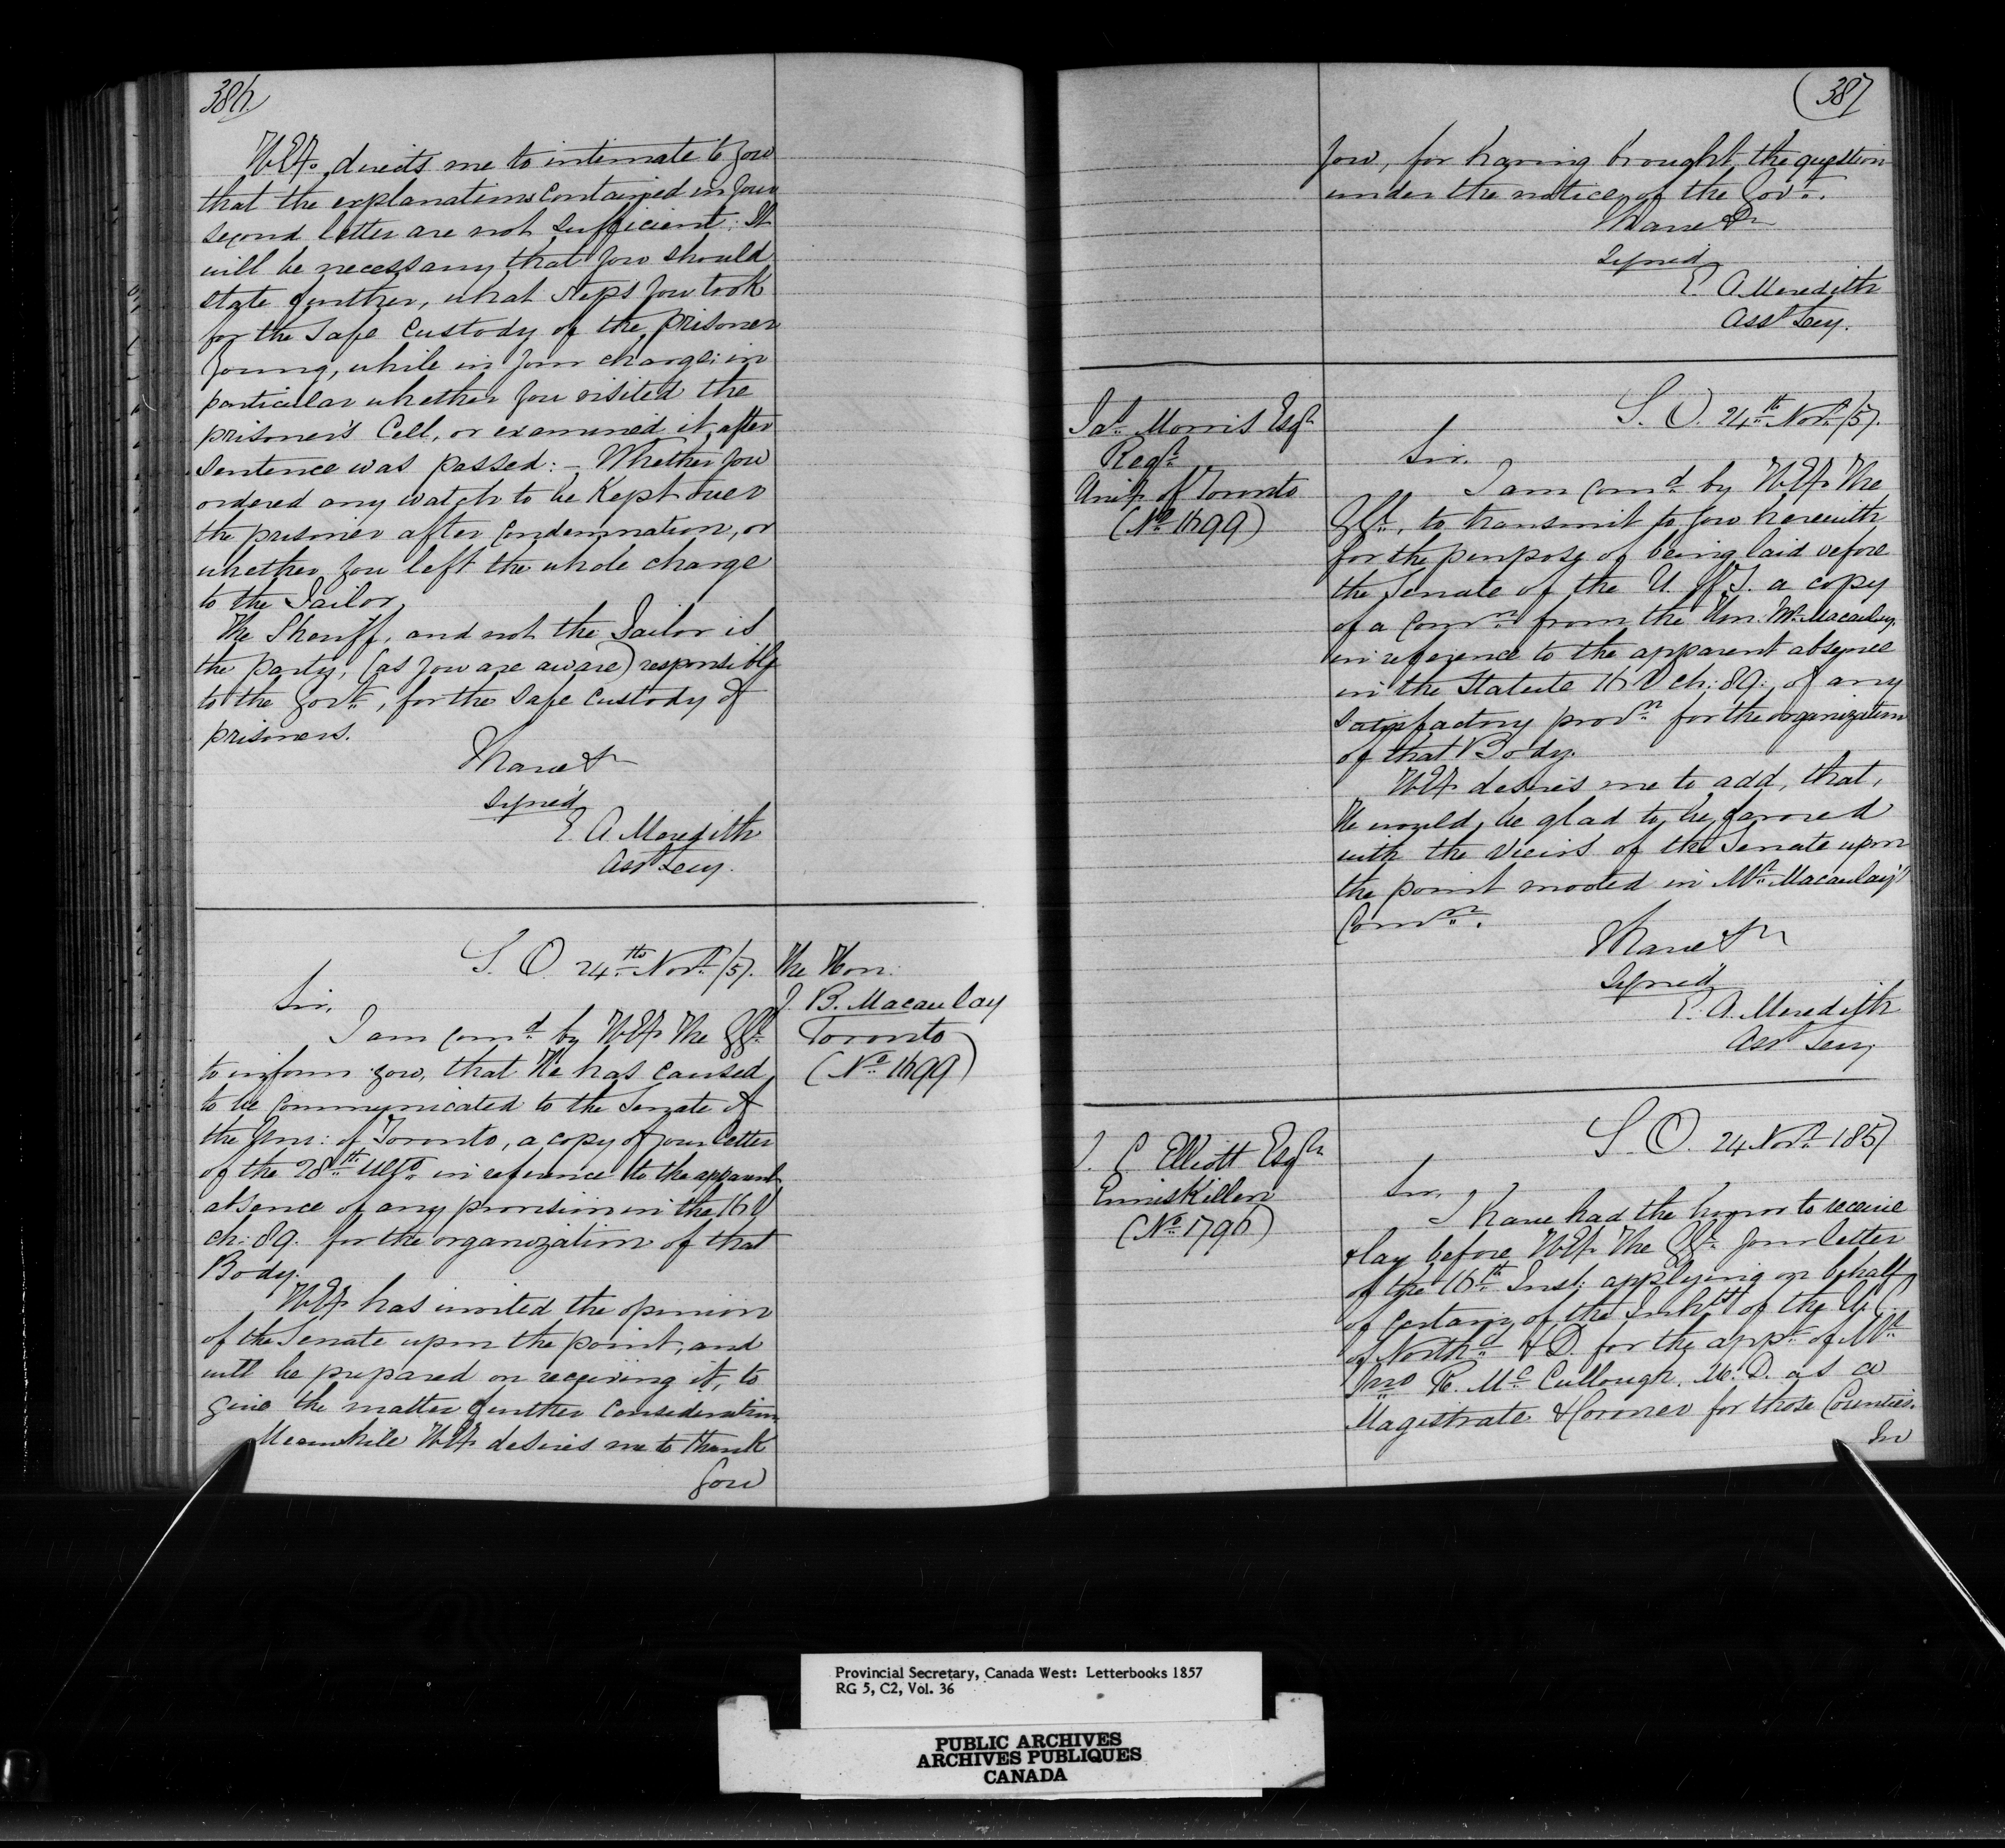 386
H.E. directs me to intimate to you
that the explanations contained in your
second letter are not sufficient. It
will be necessary that you should
state further, what steps you took
for the safe custody of the prisoner
Young, while in your charge; in
particular whether you visited the
prisoner's Cell, or examined it, after
sentence was passed: – Whether you
ordered any watch to be kept over
the prisoner after condemnation, or
whether you left the whole charge
to the Jailor.
The Sheriff, and not the Jailor is
the party, (as you are aware) responsible
to the Govt., for the safe custody of
prisoners.
I have &c
Signed
E. A. Meredith
Asst Secy.
S. O. 24th Novr /57.
The Hon:
J. B. Macaulay
Toronto
(No 1699)
Sir,
I am comd by H.E. The GGl
to inform you, that He has caused
to be communicated to the Senate of
the Univ: of Toronto, a copy of your letter
of the 28th Ulto in reference to the apparent
absence of any provision in the 16 V
ch: 89. for the organization of that
Body.
H.E. has invited the opinion
of the Senate upon the point, and
will be prepared on receiving it, to
give the matter further consideration
Meanwhile H.E. desires me to thank
you
(387
you, for having brought the question
under the notice of the Govt.
I have &c
Signed
E. A. Meredith
Asst Secy.
S. O. 24th Novr /57.
Jas Morris Esqr
Regr
Univ. of Toronto
(No 1699)
Sir,
I am comd by H.E. The
GGl, to transmit to you herewith
for the purpose of being laid before
the Senate of the U. of T. a copy
of a comn from the Hon: Mr Macaulay.
in reference to the apparent absence
in the Statute 16 V ch: 89: of any
satisfactory provn for the organization
of that Body.
H.E. desires me to add, that,
He would be glad to be favored
with the views of the Senate upon
the point mooted in Mr Macaulay's
Comn.
I have &c
Signed
E. A. Meredith
Asst Secy
S. O. 24 Novr 1857
J. C. Elliott Esqr
Enniskillen
(No 1796)
Sir,
I have had the honor to receive
& lay before H.E. The GGl your letter
of the 16th Inst: applying on behalf
of certain of the Inhts of the U.C.
of Northd & D. for the appt of Mr
Jno R. McCullough. M.D. as a
Magistrate & Coroner for those Counties.
In
Provincial Secretary, Canada West: Letterbooks 1857
RG 5, C2, Vol. 36
PUBLIC ARCHIVES
ARCHIVES PUBLIQUES
CANADA